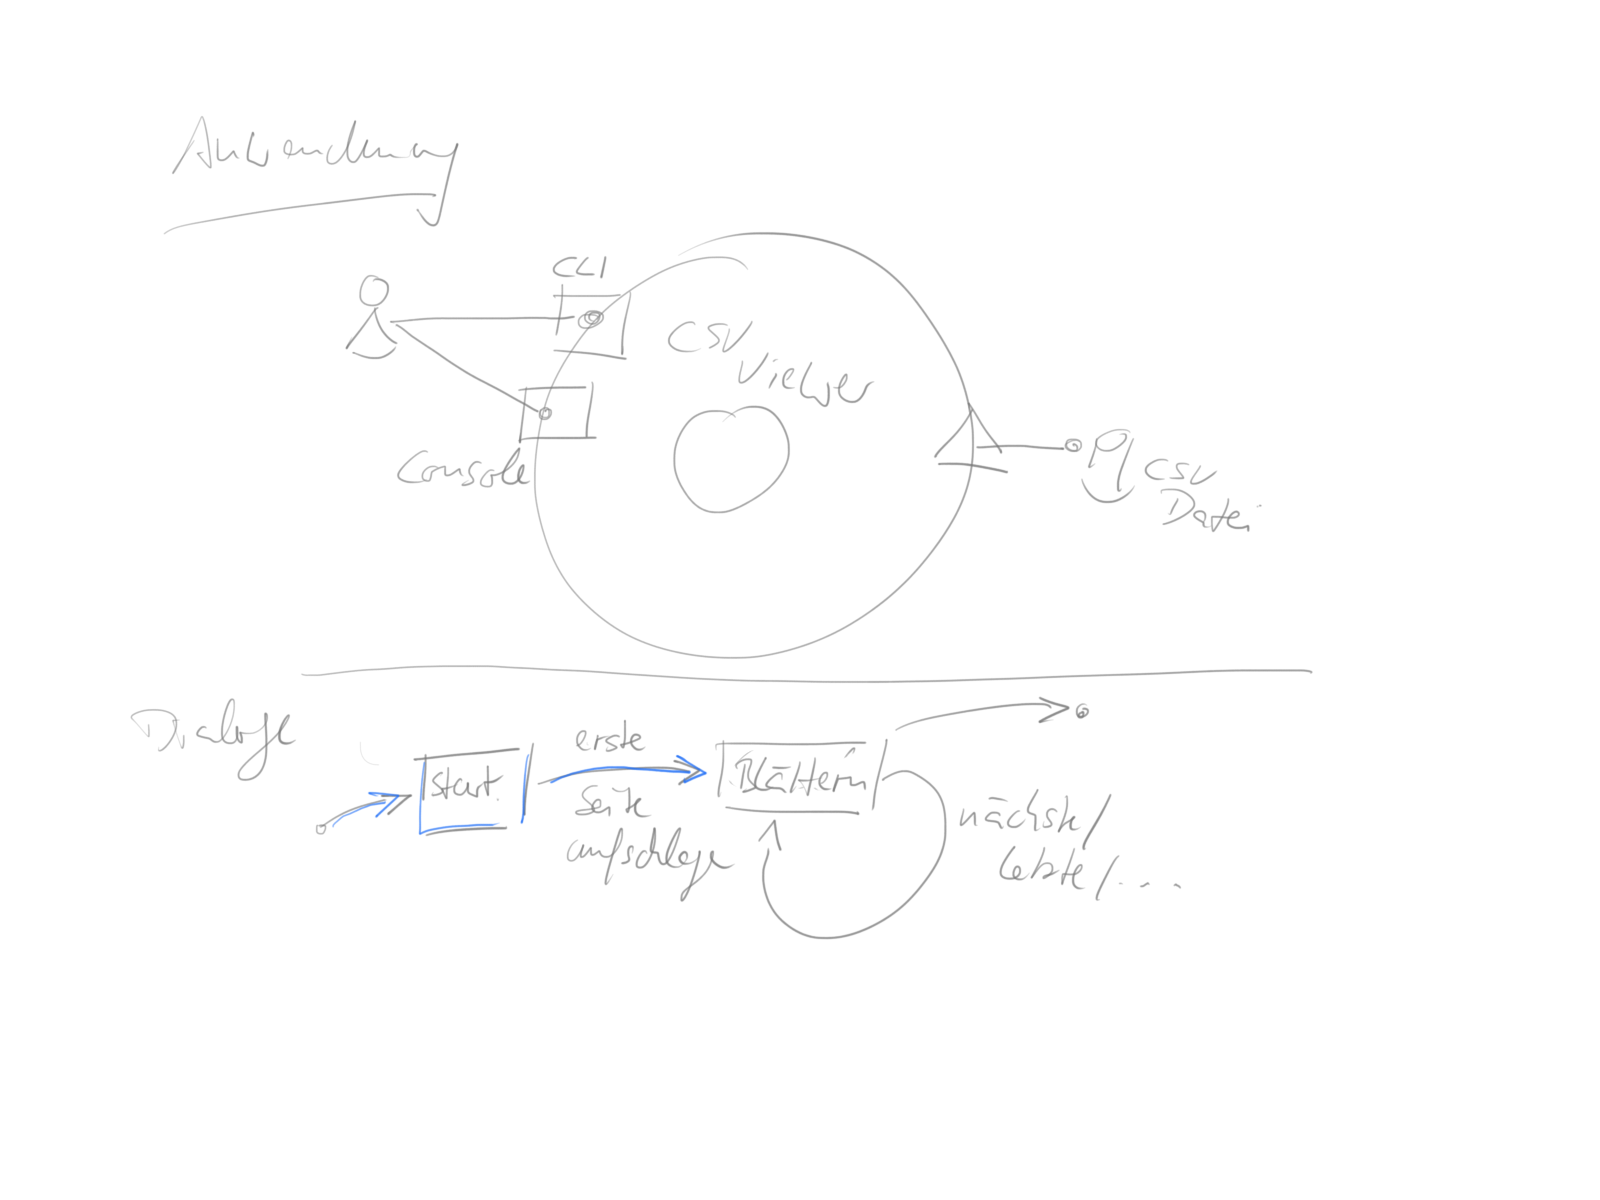 Anwendung
CLI
CSV
Viewer
Console
CSV
Datei
Dialoge
Start
erste
Seite
aufschlage
Blättern
nächste/
letzte/....